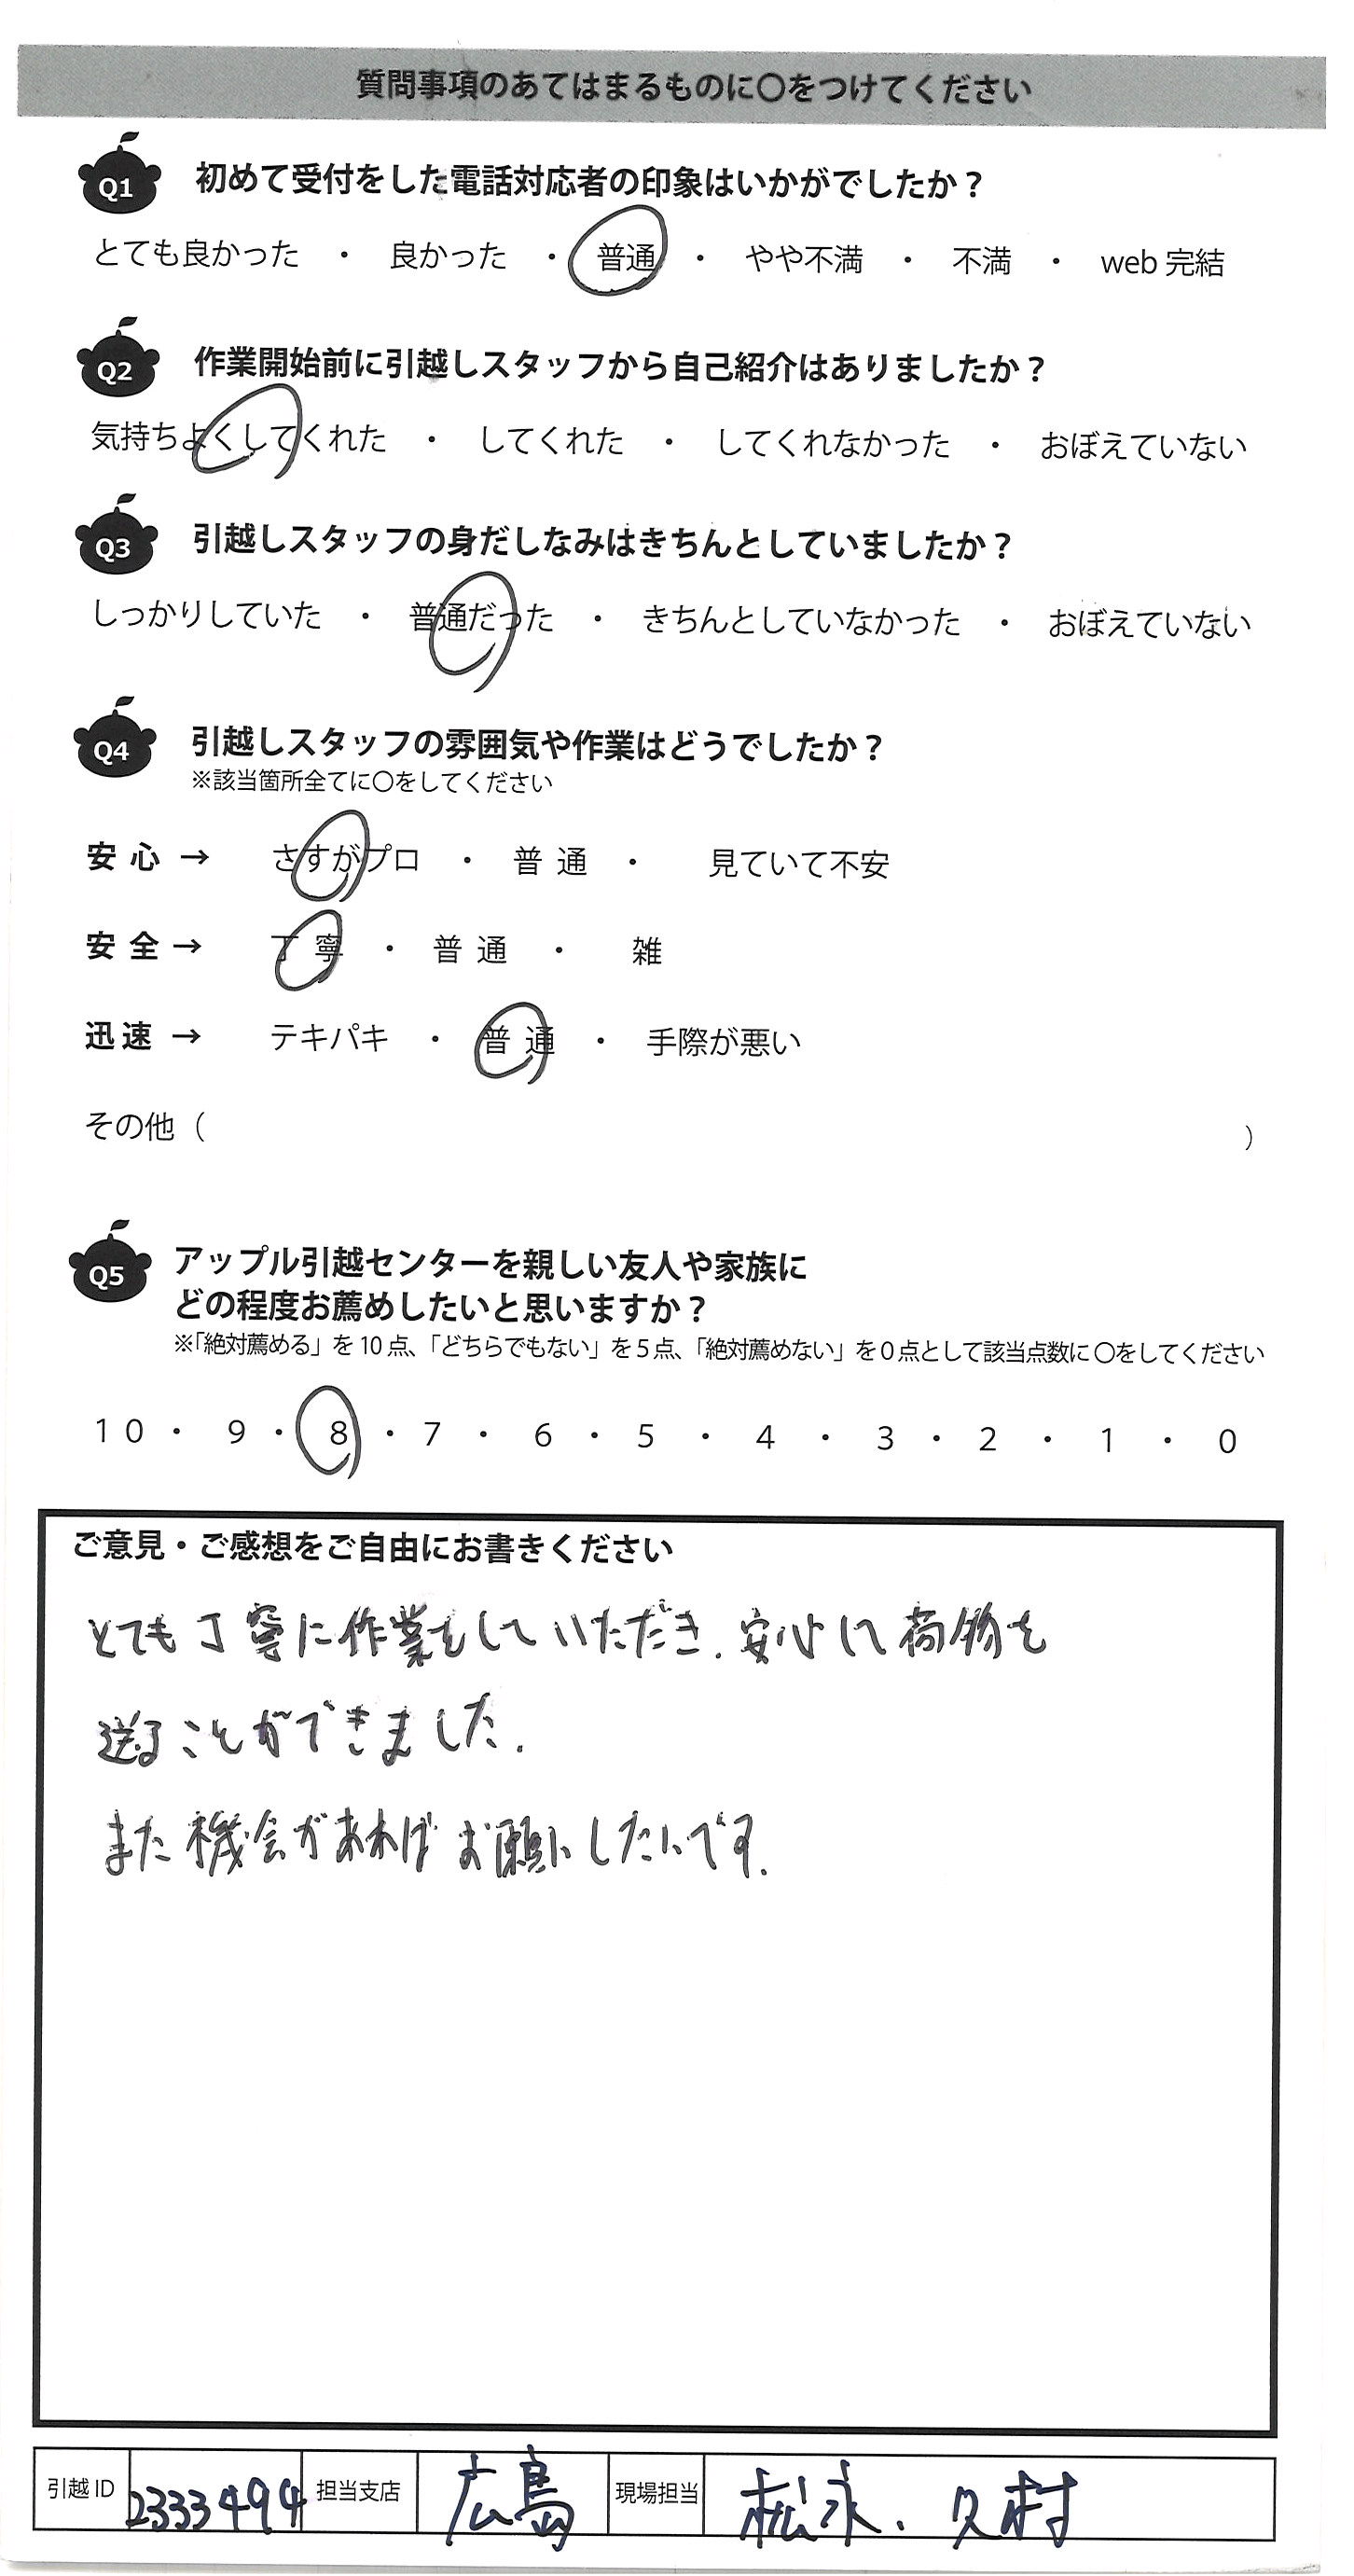 質問事項のあてはまるものに〇をつけてください
Q1 初めて受付をした電話対応者の印象はいかがでしたか？
とても良かった ・ 良かった ・ 普通 ・ やや不満 ・ 不満 ・ web 完結
Q2 作業開始前に引越しスタッフから自己紹介はありましたか？
気持ちよくしてくれた ・ してくれた ・ してくれなかった ・ おぼえていない
Q3 引越しスタッフの身だしなみはきちんとしていましたか？
しっかりしていた ・ 普通だった ・ きちんとしていなかった ・ おぼえていない
Q4 引越しスタッフの雰囲気や作業はどうでしたか？
※該当箇所全てに〇をしてください
安心 → さすがプロ ・ 普通 ・ 見ていて不安
安全 → 丁寧 ・ 普通 ・ 雑
迅速 → テキパキ ・ 普通 ・ 手際が悪い
その他（ ）
Q5 アップル引越センターを親しい友人や家族に
どの程度お薦めしたいと思いますか？
※「絶対薦める」を10点、「どちらでもない」を5点、「絶対薦めない」を0点として該当点数に〇をしてください
10 ・ 9 ・ 8 ・ 7 ・ 6 ・ 5 ・ 4 ・ 3 ・ 2 ・ 1 ・ 0
ご意見・ご感想をご自由にお書きください
とても丁寧に作業をしていただき、安心して荷物を
送ることができました。
また機会があればお願いしたいです。
引越ID 2333494 担当支店 広島 現場担当 松永、久村